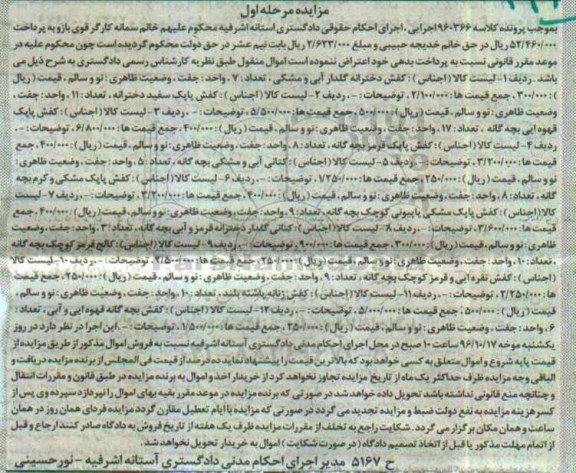 مزایده مرحله اول
بموجب پرونده کلاسه ۹۶۰۳۶۶ اجرایی ، اجرای احکام حقوقی دادگستری آستانه اشرفیه محکوم علیهم خانم سمانه کارگر قوی بازو به پرداخت
۵۲/۴۶۰/۰۰۰ ریال در حق خانم خدیجه حبیبی و مبلغ ۲/۶۲۳/۰۰۰ ریال بابت نیم عشر در حق دولت محکوم گردیده است چون محکوم علیه در
موعد مقرر قانونی نسبت به پرداخت بدهی خود اعتراض ننموده است اموال منقول طبق نظریه کارشناس رسمی دادگستری به شرح ذیل می
باشد . ردیف ۱- لیست کالا (اجناس) : کفش دخترانه گلدار آبی و مشکی ، تعداد : ۷ ، واحد : جفت ، وضعیت ظاهری : نو و سالم ، قیمت (ریال
) : ۳۰۰/۰۰۰ ، جمع قیمت ها : ۲/۱۰۰/۰۰۰ ، توضیحات : - . ردیف ۲- لیست کالا (اجناس) : کفش پاپک سفید دخترانه ، تعداد : ۱۱ ، واحد : جفت ،
وضعیت ظاهری : نو و سالم ، قیمت (ریال) : ۵۰۰/۰۰۰ ، جمع قیمت ها : ۵/۵۰۰/۰۰۰ ، توضیحات : - . ردیف ۳- لیست کالا (اجناس) : کفش پاپک
قهوه ایی بچه گانه ، تعداد : ۱۷ ، واحد : جفت ، وضعیت ظاهری : نو و سالم ، قیمت (ریال) : ۴۰۰/۰۰۰ ، جمع قیمت ها : ۶/۸۰۰/۰۰۰ ، توضیحات : - .
ردیف ۴- لیست کالا (اجناس) : کفش پاپک قرمز بچه گانه ، تعداد : ۸ ، واحد : جفت ، وضعیت ظاهری : نو و سالم ، قیمت (ریال) : ۴۰۰/۰۰۰ ، جمع
قیمت ها : ۳/۲۰۰/۰۰۰ ، توضیحات : - . ردیف ۵- لیست کالا (اجناس) : کتانی آبی و مشکی بچه گانه ، تعداد : ۵ ، واحد : جفت ، وضعیت ظاهری :
نو و سالم ، قیمت (ریال) : ۲۵۰/۰۰۰ ، جمع قیمت ها : ۱/۲۵۰/۰۰۰ ، توضیحات : - . ردیف ۶- لیست کالا (اجناس) : کفش پاپک مشکی و کرم بچه
گانه ، تعداد : ۸ ، واحد : جفت ، وضعیت ظاهری : نو و سالم ، قیمت (ریال) : ۴۰۰/۰۰۰ ، جمع قیمت ها : ۳/۲۰۰/۰۰۰ ، توضیحات : - . ردیف ۷- لیست
کالا (اجناس) : کفش پاپک مشکی پاپیونی کوچک بچه گانه ، تعداد : ۹ ، واحد : جفت ، وضعیت ظاهری : نو و سالم ، قیمت (ریال) : ۴۰۰/۰۰۰ ، جمع
قیمت ها : ۳/۶۰۰/۰۰۰ ، توضیحات : - . ردیف ۸- لیست کالا (اجناس) : کتانی گلدار دخترانه قرمز و آبی بچه گانه ، تعداد : ۳ ، واحد : جفت ، وضعیت
ظاهری : نو و سالم ، قیمت (ریال) : ۳۰۰/۰۰۰ ، جمع قیمت ها : ۹۰۰/۰۰۰ ، توضیحات : - . ردیف ۹- لیست کالا (اجناس) : کالج قرمز کوچک بچه گانه
، تعداد : ۱۰ ، واحد : جفت ، وضعیت ظاهری : نو و سالم ، قیمت (ریال) : ۲۵۰/۰۰۰ ، جمع قیمت ها : ۲/۵۰۰/۰۰۰ ، توضیحات : - . ردیف ۱۰- لیست کالا
(اجناس) : کفش نقره ایی و قرمز کوچک بچه گانه ، تعداد : ۹ ، واحد : جفت ، وضعیت ظاهری : نو و سالم ، قیمت (ریال) : ۲۵۰/۰۰۰ ، جمع قیمت
ها : ۲/۲۵۰/۰۰۰ ، توضیحات : - . ردیف ۱۱- لیست کالا (اجناس) : کفش زنانه پاشنه بلند ، تعداد : ۱۰ ، واحد : جفت ، وضعیت ظاهری : نو و سالم ،
قیمت (ریال) : ۵۰۰/۰۰۰ ، جمع قیمت ها : ۵/۰۰۰/۰۰۰ ، توضیحات : - . ردیف ۱۲- لیست کالا (اجناس) : کفش بچه گانه قهوه ایی و آبی ، تعداد :
۶ ، واحد : جفت ، وضعیت ظاهری : نو و سالم ، قیمت (ریال) : ۲۵۰/۰۰۰ ، جمع قیمت ها : ۱/۵۰۰/۰۰۰ ، توضیحات : - . این اجرا در نظر دارد در روز
یکشنبه مورخه ۹۶/۱۰/۱۷ ساعت ۱۰ صبح در محل اجرای احکام مدنی دادگستری آستانه اشرفیه نسبت به فروش اموال مذکور از طریق مزایده از
قیمت پایه شروع و اموال متعلق به کسی خواهد بود که بالاترین قیمت را پیشنهاد نماید ده درصد از قیمت فی المجلس از برنده مزایده دریافت و
الباقی وجه مزایده ظرف حداکثر یک ماه از تاریخ مزایده تجاوز نخواهد کرد از خریدار اخذ و اموال به برنده مزایده در طبق قانون و مقررات انتقال
و چنانچه منع قانونی نداشته باشد تحویل داده خواهد شد در صورتی که برنده مزایده در موعد مقرر بقیه بهای اموال را نپردازد سپرده وی پس از
کسر هزینه مزایده به نفع دولت ضبط و مزایده تجدید می گردد در صورتی که مزایده با ایام تعطیل مقارن گردد مزایده فردای همان روز در همان
ساعت و همان مکان برگزار می گردد . شکایت راجع به تخلف از مقررات مزایده ظرف یک هفته از تاریخ فروش به دادگاه صادر کننده ارجاع و قبل
از اتمام مهلت مذکور یا قبل از اتخاذ تصمیم دادگاه (در صورت شکایت) اموال به خریدار تحویل نخواهد شد .
ح ۵۱۶۷ مدیر اجرای احکام مدنی دادگستری آستانه اشرفیه - نورحسینی